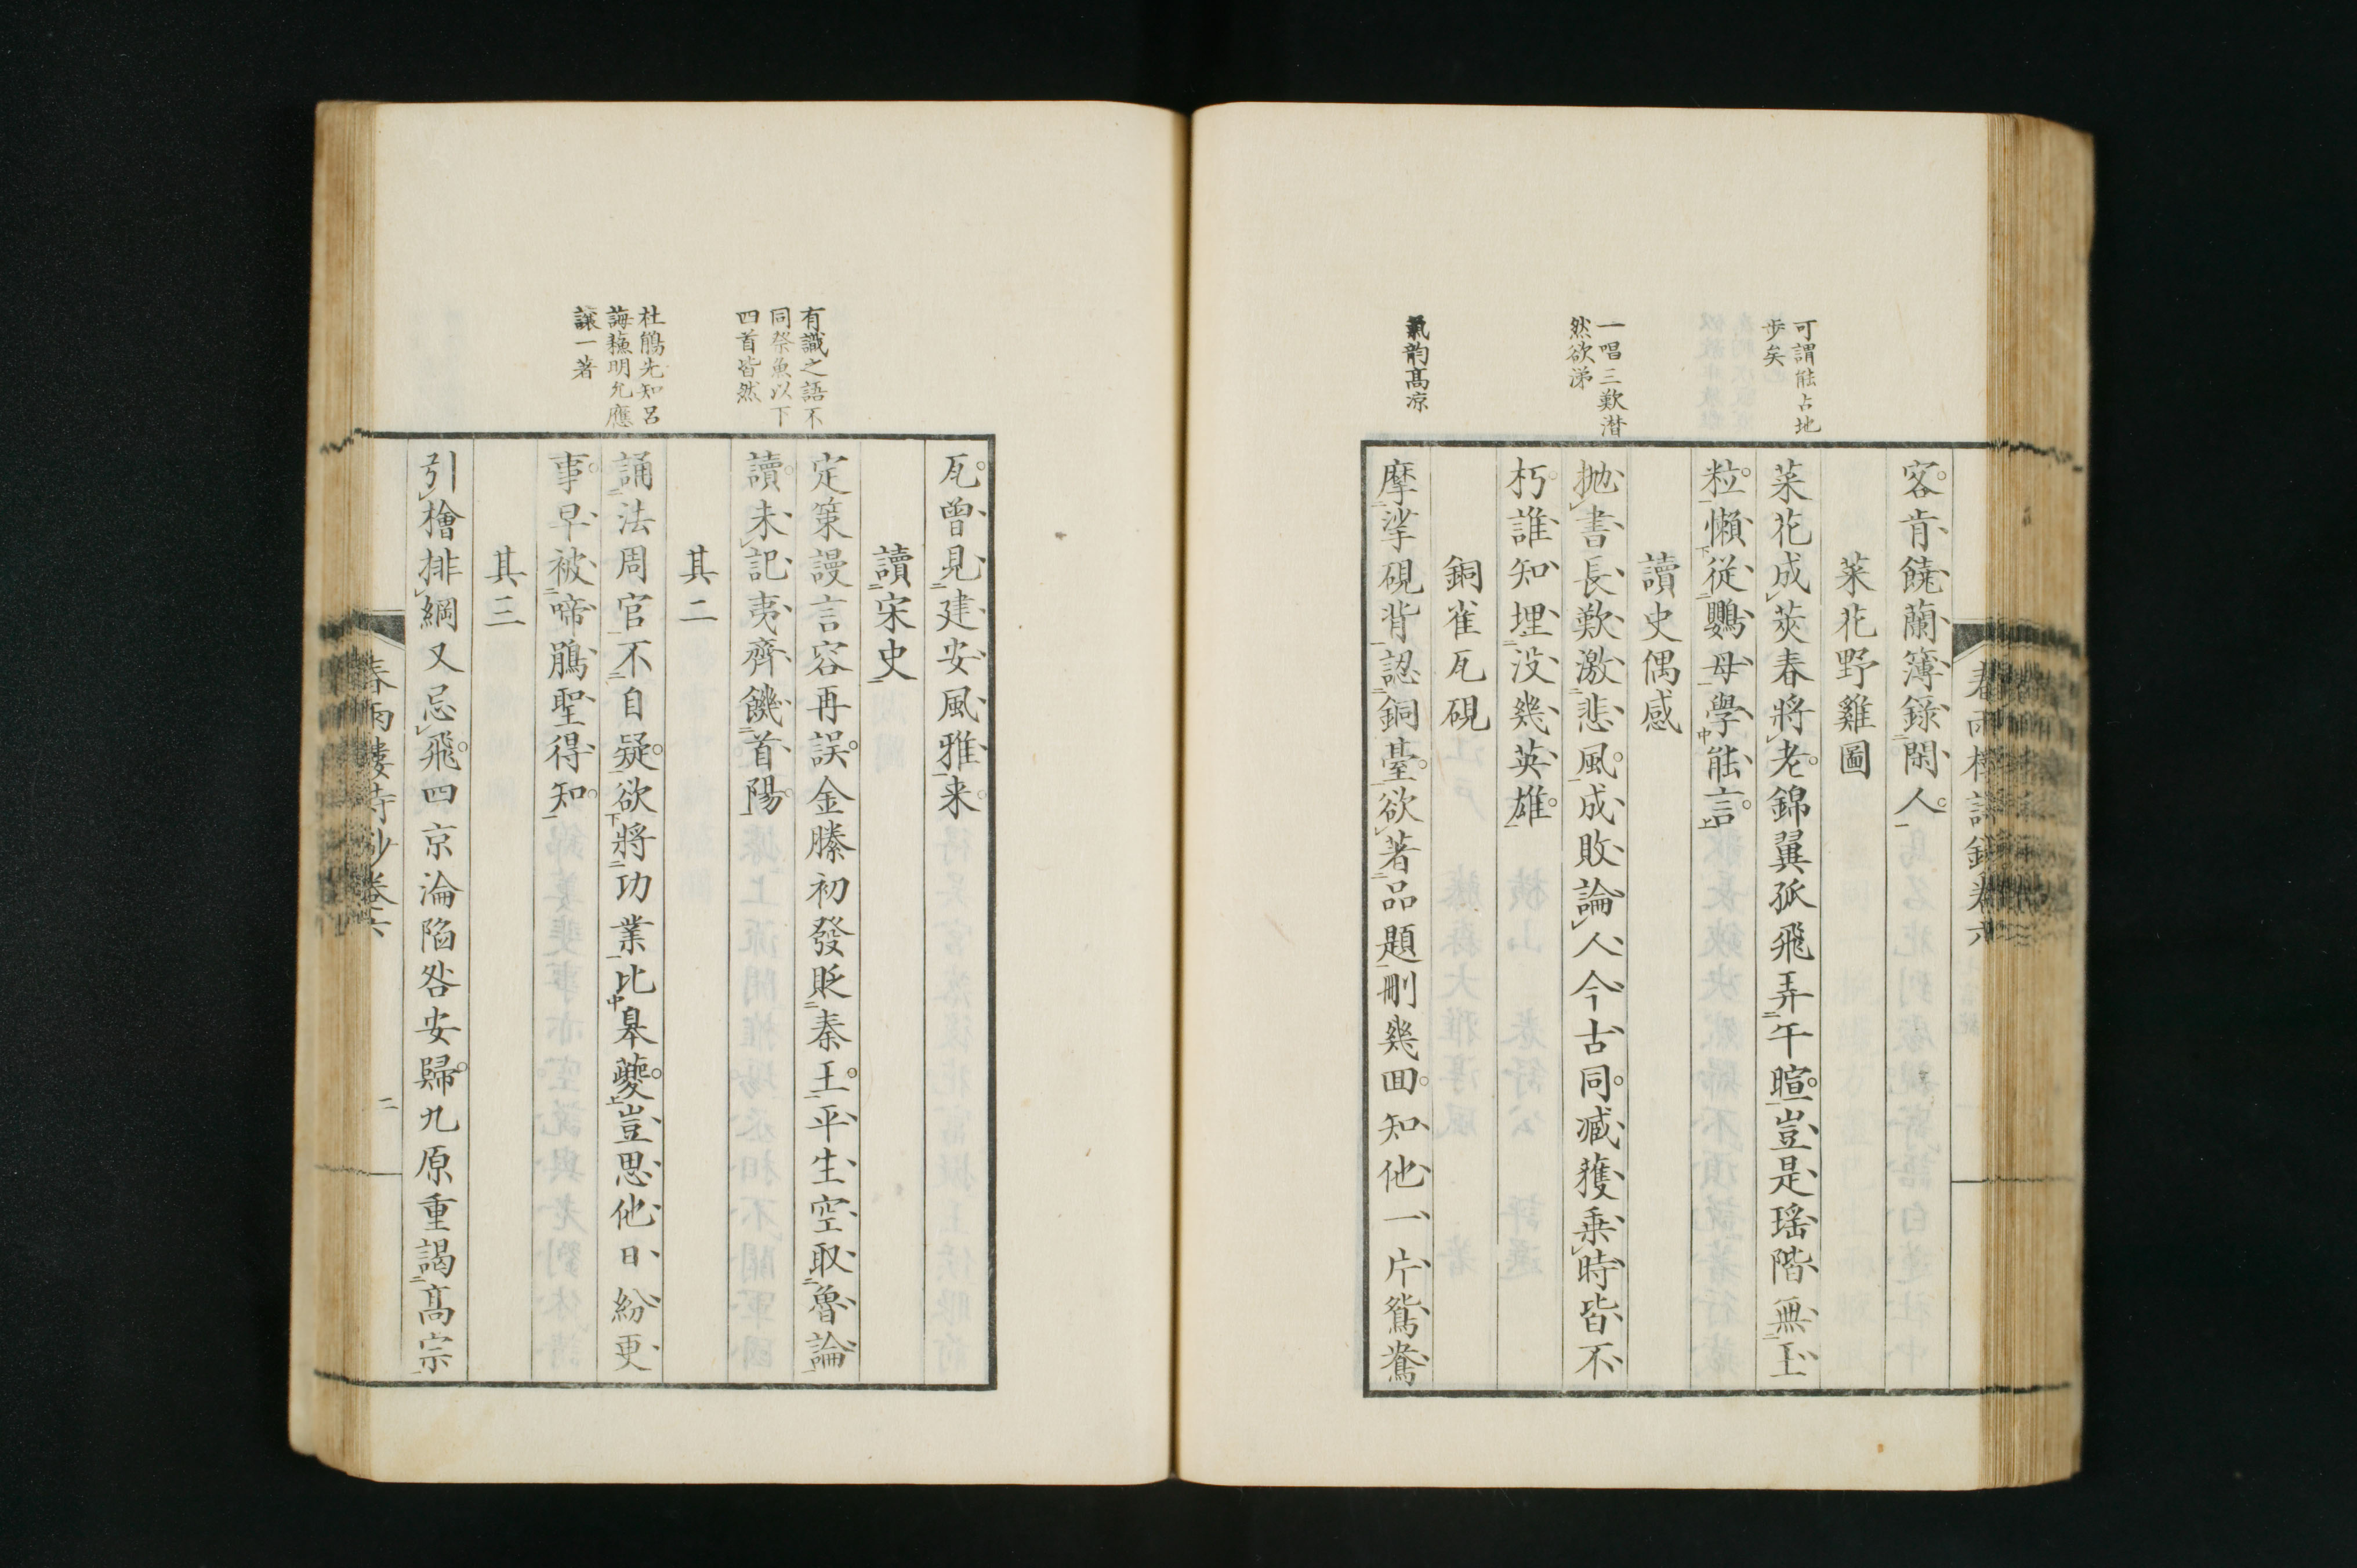 客肯饒蘭簿錄閑人
菜花野雞圖
可謂能占地
步矣
菜花成莢春將老錦翼孤飛弄午暄豈是瑤階無玉
粒懶從鸚母學能言
讀史偶感
一唱三歎潸
然欲涕
拋書長歎激悲風成敗論人今古同臧獲乘時皆不
朽誰知埋没幾英雄
銅雀瓦硯
氣韵高凉
摩挲硯背認銅臺欲著品題刪幾回知他一片鴛鴦
瓦曾見建安風雅来
讀宋史
有識之語不
同祭魚以下
四首皆然
定策謾言容再誤金縢初發貶秦王平生空取魯論
讀未記夷齊餓首陽
其二
杜鵑先知呂
誨蘓明允應
讓一著
誦法周官不自疑欲將功業比皋夔豈思他日紛更
事早被啼鵑聖得知
其三
引檜排綱又忌飛四京淪陷咎安歸九原重謁髙宗
春雨樓詩鈔卷六
二